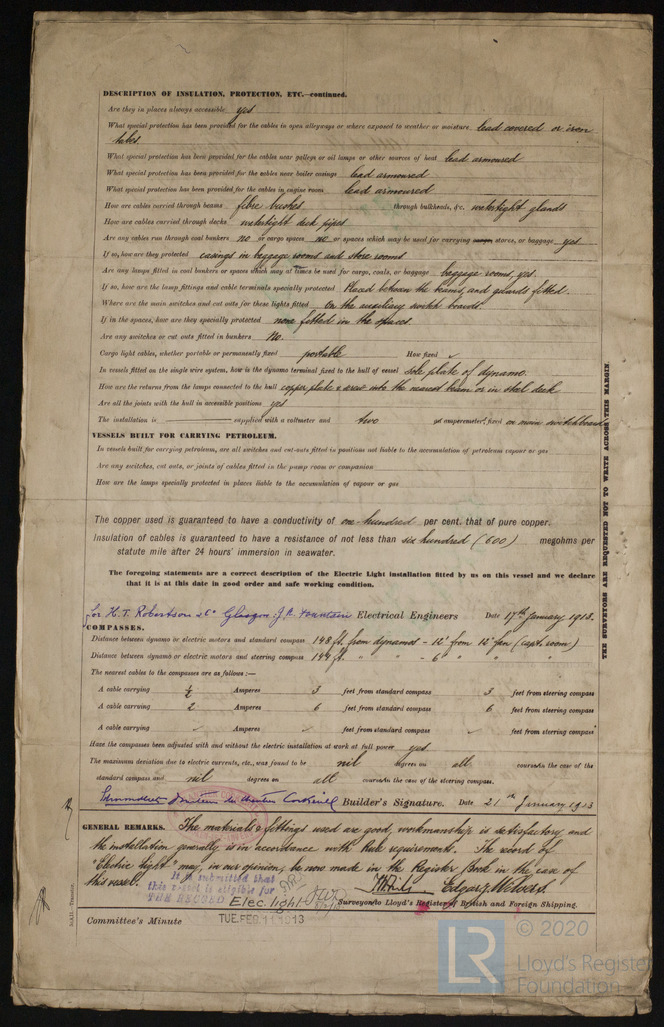 DESCRIPTION OF INSULATION, PROTECTION, ETC.—continued.
Are they in places always accessible yes
What special protection has been provided for the cables in open alleyways or where exposed to weather or moisture. lead covered or iron
tubes.
What special protection has been provided for the cables near galleys or oil lamps or other sources of heat lead armoured
What special protection has been provided for the cables near boiler casings lead armoured
What special protection has been provided for the cables in engine room lead armoured
How are cables carried through beams fibre bushes through bulkheads, &c. watertight glands
How are cables carried through decks watertight deck pipes
Are any cables run through coal bunkers no or cargo spaces no or spaces which may be used for carrying cargo, stores, or baggage yes
If so, how are they protected casings in baggage rooms and store rooms
Are any lamps fitted in coal bunkers or spaces which may at times be used for cargo, coals, or baggage baggage rooms, yes.
If so, how are the lamp fittings and cable terminals specially protected Placed between the beams, and guards fitted.
Where are the main switches and cut outs for these lights fitted On the auxiliary switch boards.
If in the spaces, how are they specially protected none fitted in the spaces.
Are any switches or cut outs fitted in bunkers No.
Cargo light cables, whether portable or permanently fixed portable How fixed ✓
In vessels fitted on the single wire system, how is the dynamo terminal fixed to the hull of vessel sole plate of dynamo.
How are the returns from the lamps connected to the hull copper plate & screw into the nearest beam or in steel deck
Are all the joints with the hull in accessible positions yes
The installation is supplied with a voltmeter and two amperemeters, fixed on main switchboard
VESSELS BUILT FOR CARRYING PETROLEUM.
In vessels built for carrying petroleum, are all switches and cut-outs fitted in positions not liable to the accumulation of petroleum vapour or gas
Are any switches, cut outs, or joints of cables fitted in the pump room or companion
How are the lamps specially protected in places liable to the accumulation of vapour or gas
The copper used is guaranteed to have a conductivity of one hundred per cent. that of pure copper.
Insulation of cables is guaranteed to have a resistance of not less than six hundred (600) megohms per
statute mile after 24 hours' immersion in seawater.
The foregoing statements are a correct description of the Electric Light installation fitted by us on this vessel and we declare
that it is at this date in good order and safe working condition.
for H. T. Robertson & Co Glasgow: J. A. Fountain Electrical Engineers Date 17th January 1913.
COMPASSES.
Distance between dynamo or electric motors and standard compass 148 ft. from dynamos - 12' from 12" fan (capt. room)
Distance between dynamo or electric motors and steering compass 144 ft. " " - 6' " " "
The nearest cables to the compasses are as follows:—
A cable carrying ½ Amperes 3 feet from standard compass 3 feet from steering compass
A cable carrying 2 Amperes 6 feet from standard compass 6 feet from steering compass
A cable carrying ✓ Amperes ✓ feet from standard compass ✓ feet from steering compass
Have the compasses been adjusted with and without the electric installation at work at full power yes
The maximum deviation due to electric currents, etc., was found to be nil degrees on all courses in the case of the
standard compass and nil degrees on all courses in the case of the steering compass.
Builder's Signature. Date 21th January 1913
GENERAL REMARKS. The materials & fittings used are good, workmanship is satisfactory and
the installation generally is in accordance with Rule requirements. The record of
"Electric light" may, in our opinion, be now made in the Register Book in the case of
this vessel.
It is submitted that
this vessel is eligible for
THE RECORD Elec. light
Edgar
Surveyors to Lloyd's Register of British and Foreign Shipping.
Committee's Minute TUE. FEB 11 1913
THE SURVEYORS ARE REQUESTED NOT TO WRITE ACROSS THIS MARGIN.
© 2020
LR
Lloyd's Register
Foundation